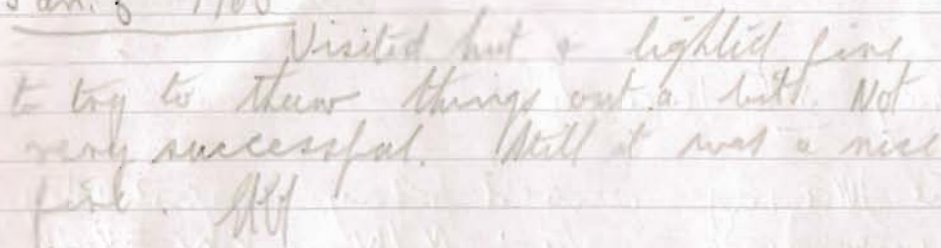 Jan. 8
Visited hut & lighted fire
to try to thaw things out a bit. Not
very successful. Still it was a nice
fire.